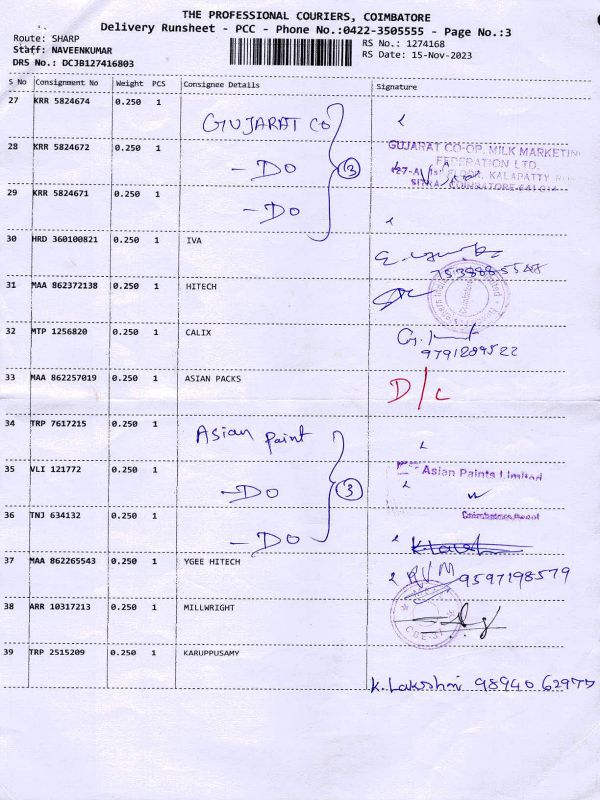 THE PROFESSIONAL COURIERS, COIMBATORE
Delivery Runsheet - PCC - Phone No.:0422-3505555 - Page No.:3
Route: SHARP
RS No.: 1274168
Staff: NAVEENKUMAR
RS Date: 15-Nov-2023
DRS No.: DCJB127416803
S No Consignment No Weight PCS Consignee Details Signature
27 KRR 5824674 0.250 1 GUJARAT CO
28 KRR 5824672 0.250 1 - DO 3
GUJARAT CO-OP. MILK MARKETING
FEDERATION LTD.
KALAPATTY
COIMBATORE-641014
29 KRR 5824671 0.250 1 - DO
30 HRD 360100821 0.250 1 IVA
31 MAA 862372138 0.250 1 HITECH
32 MTP 1256820 0.250 1 CALIX
9791289522
33 MAA 862257019 0.250 1 ASIAN PACKS D/C
34 TRP 7617215 0.250 1 Asian paint
35 VLI 121772 0.250 1 - DO 3 Asian Paints Limited
36 TNJ 634132 0.250 1 - DO
37 MAA 862265543 0.250 1 YGEE HITECH 9597198579
38 ARR 10317213 0.250 1 MILLWRIGHT
39 TRP 2515209 0.250 1 KARUPPUSAMY
K. Lakshmi 98940 62975